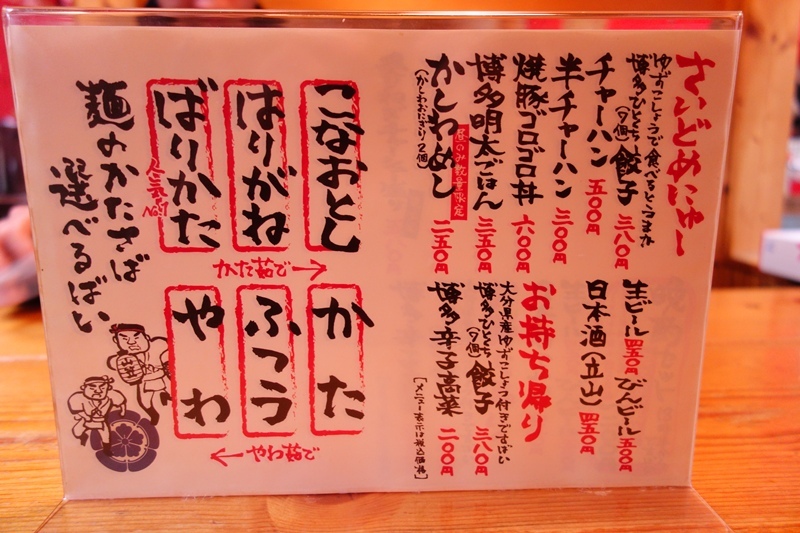 さいどめにゅー
ゆずこしょうで食べるとうまか
博多ひとくち餃子(9個) 三八〇円
チャーハン 五〇〇円
半チャーハン 三〇〇円
焼豚ゴロゴロ丼 六〇〇円
博多明太ごはん 三五〇円
昼のみ数量限定
かしわめし 二五〇円
(かしわおにぎり2個)
生ビール 四五〇円
びんビール 五〇〇円
日本酒(立山) 四五〇円
お持ち帰り
大分県産ゆずこしょう付きですばい
博多ひとくち餃子(9個) 三八〇円
博多辛子高菜 二〇〇円
[メニュー表示は税込価格]
こなおとし
はりがね
ばりかた
人気No.1
かた茹で→
かた
ふつう
やわ
←やわ茹で
麺のかたさば
選べるばい